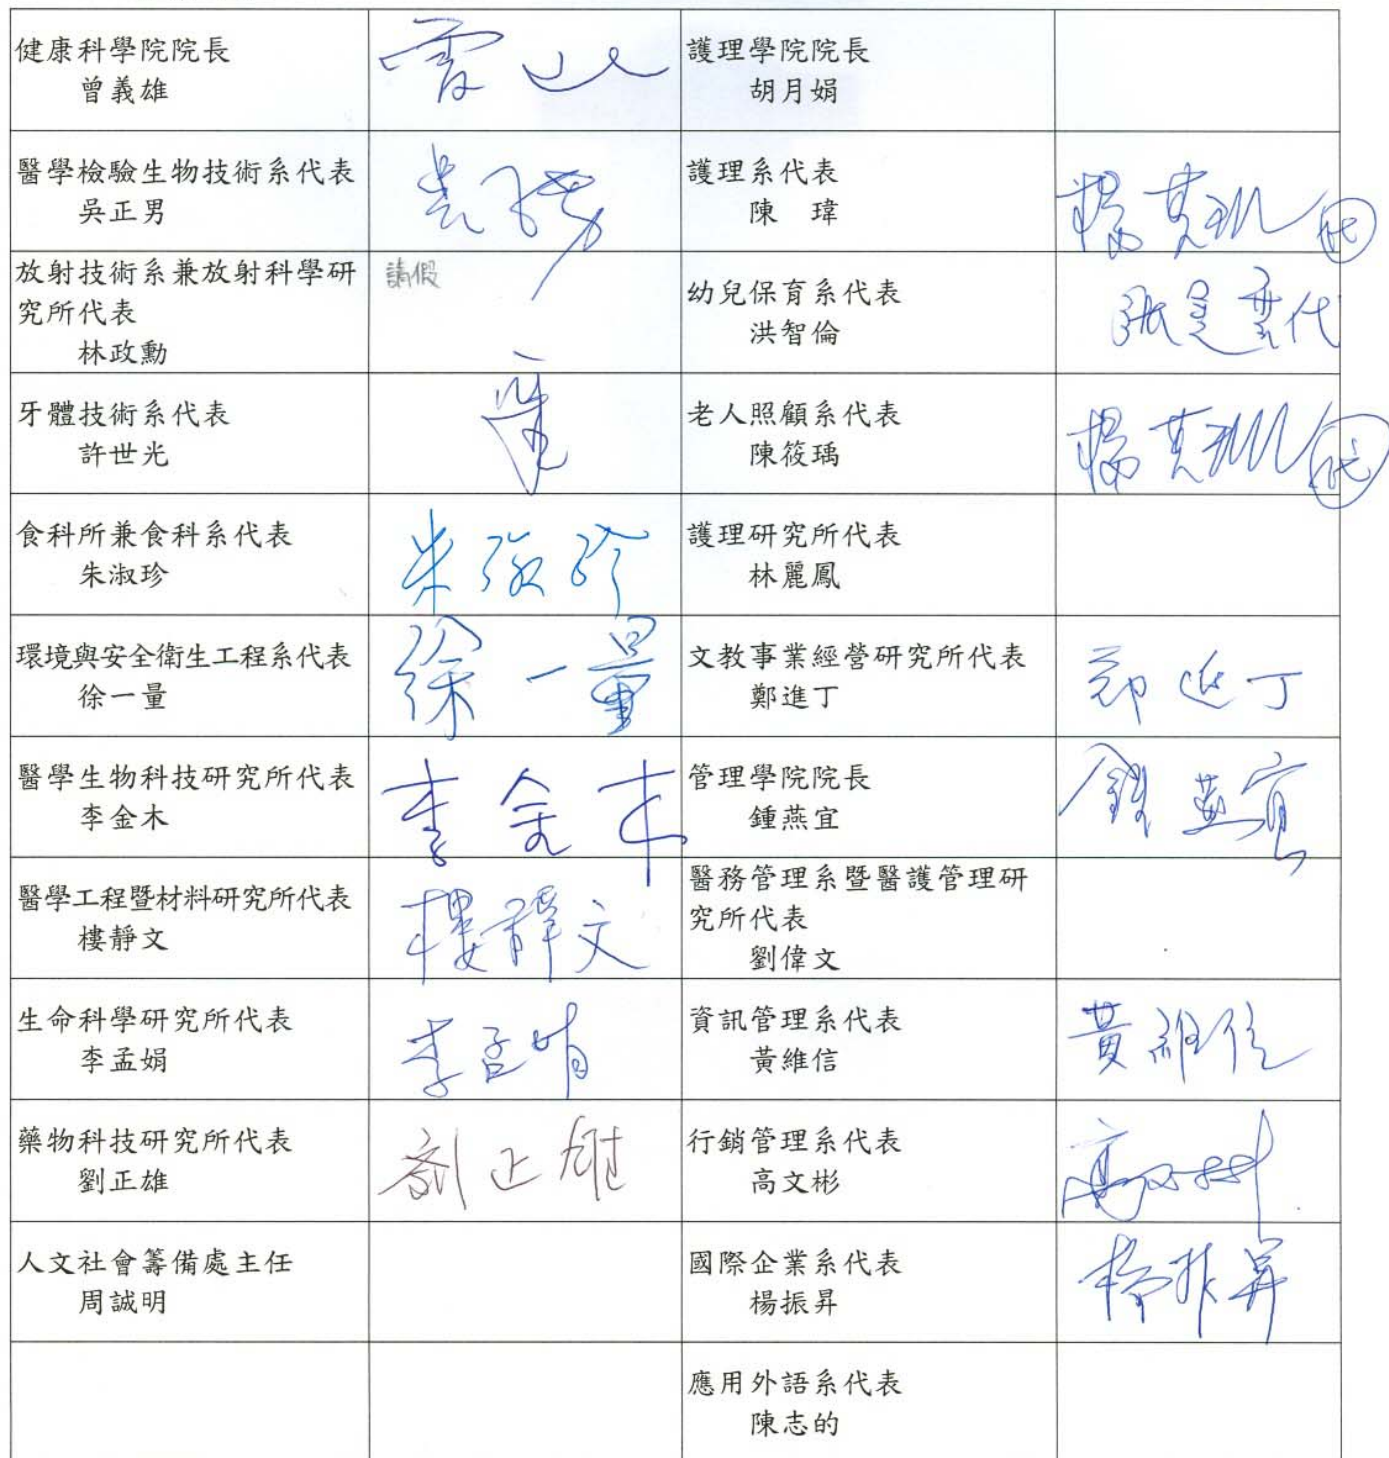 健康科學院院長
曾義雄
護理學院院長
胡月娟
醫學檢驗生物技術系代表
吳正男
護理系代表
陳 瑋
代
放射技術系兼放射科學研究所代表
林政勳
請假
幼兒保育系代表
洪智倫
代
牙體技術系代表
許世光
老人照顧系代表
陳筱瑀
代
食科所兼食科系代表
朱淑珍
朱淑珍
護理研究所代表
林麗鳳
環境與安全衛生工程系代表
徐一量
徐一量
文教事業經營研究所代表
鄭進丁
鄭進丁
醫學生物科技研究所代表
李金木
李金木
管理學院院長
鍾燕宜
鍾燕宜
醫學工程暨材料研究所代表
樓靜文
樓靜文
醫務管理系暨醫護管理研究所代表
劉偉文
生命科學研究所代表
李孟娟
李孟娟
資訊管理系代表
黃維信
黃維信
藥物科技研究所代表
劉正雄
劉正雄
行銷管理系代表
高文彬
高文彬
人文社會籌備處主任
周誠明
國際企業系代表
楊振昇
楊振昇
應用外語系代表
陳志的